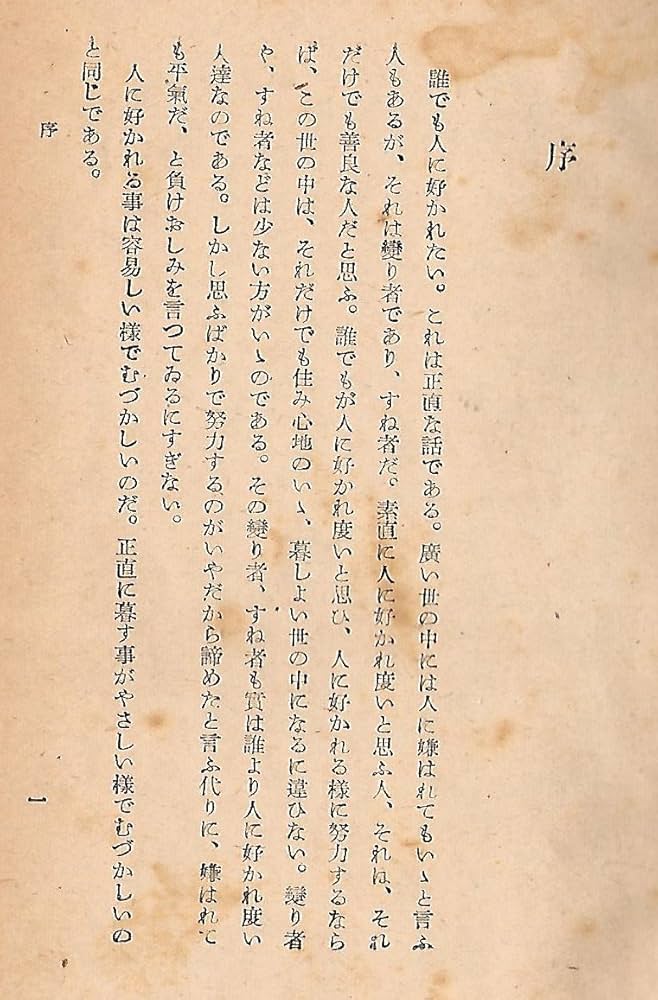 序
誰でも人に好かれたい。これは正直な話である。廣い世の中には人に嫌はれてもいゝと言ふ
人もあるが、それは變り者であり、すね者だ。素直に人に好かれ度いと思ふ人、それは、それ
だけでも善良な人だと思ふ。誰でもが人に好かれ度いと思ひ、人に好かれる様に努力するなら
ば、この世の中は、それだけでも住み心地のいゝ、暮しよい世の中になるに違ひない。變り者
や、すね者などは少ない方がいゝのである。その變り者、すね者も實は誰より人に好かれ度い
人達なのである。しかし思ふばかりで努力するのがいやだから諦めたと言ふ代りに、嫌はれて
も平氣だ、と負けおしみを言つてゐるにすぎない。
人に好かれる事は容易しい様でむづかしいのだ。正直に暮す事がやさしい様でむづかしいの
と同じである。
序
一